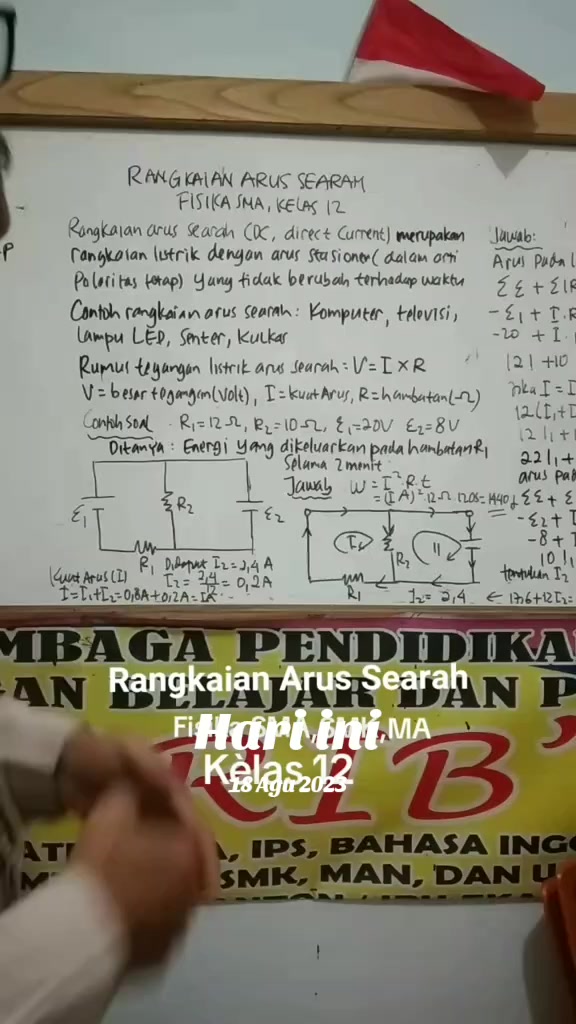 RANGKAIAN ARUS SEARAH
FISIKA SMA, KELAS 12
Rangkaian arus searah (DC, direct Current) merupakan
rangkaian listrik dengan arus stasioner (dalam arti
Polaritas tetap) yang tidak berubah terhadap waktu
Contoh rangkaian arus searah: Komputer, televisi,
lampu LED, Senter, Kulkas
Rumus tegangan listrik arus searah: V = I × R
V = besar tegangan (Volt), I = kuat Arus, R = hambatan (Ω)
Contoh Soal R1 = 12 Ω, R2 = 10 Ω, ε1 = 20V ε2 = 8V
Ditanya: Energi yang dikeluarkan pada hambatan R1
Selama 2 menit
Jawab W = I².R.t
ε1
R2
ε2
R1
I2 = 2,4 A
= 0,2A
Kuat Arus (I)
I = I1 + I2 = 0,8A + 0,2A =
I
II
R2
R1
I2 = 2,4
Jawab:
Arus Pada
Σε + ΣIR
-ε1 + I.R
-20 + I.
12I + 10
Jika I = I
12(I1 + I
12I1 + 1
22I1 +
arus pad
Σε + Σ
-ε2 + I
-8 + I
10I1
tentukan I2
← 17,6 + 12I2 =
P
MBAGA PENDIDIKA
AN BELAJAR DAN P
RIB'
IPS, BAHASA INGG
SMK, MAN, DAN U
Rangkaian Arus Searah
Fisika SMA,SMK,MA
Kelas 12
Hari ini
18 Agu 2023